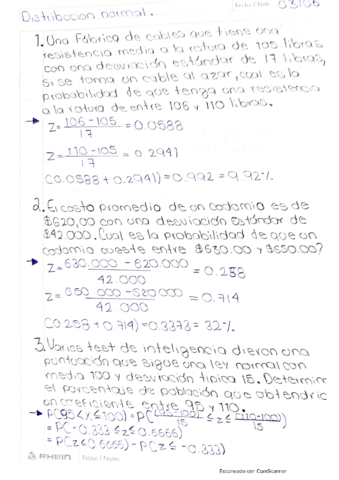 Distribucion normal. 03105
1. Una Fábrica de cables que tiene una
resistencia media a la rotura de 105 libras
con una desviación estándar de 17 libras,
si se toma un cable al azar, cual es la
probabilidad de que tenga una resistencia
a la rotura de entre 106 y 110 libras.
→ Z= 106-105 / 17 = 0.0588
Z= 110-105 / 17 = 0.2941
(0.0588 + 0.2941) = 0.992 = 9.92%
2. El costo promedio de un codomio es de
$620,00 con una desviación estándar de
$42.000. Cual es la probabilidad de que un
codomio cueste entre $630.00 y $650.00?
→ Z= 630.000 - 620.000 / 42.000 = 0.258
Z= 650.000 - 620000 / 42.000 = 0.714
(0.258 + 0.714) = 0.3373 = 32%
3. Varios test de inteligencia dieron una
puntuación que sigue una ley normal con
media 100 y desviación tipica 15. Determinar
el porcentaje de población que obtendric
un coeficiente entre 95 y 110.
→ P(95 < x ≤ 100) = P( (95-100) / 15 ≤ z ≤ (110-100) / 15 )
= P(-0.333 ≤ z ≤ 0.6666)
= P(z ≤ 0.6666) - P(z ≤ -0.333)
RHEIN
Escaneado con CamScanner